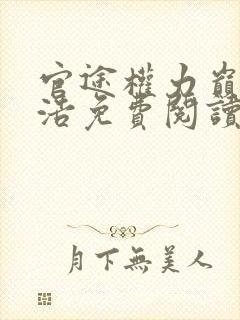 官途權力巔
活免費閱讀
月下無美人